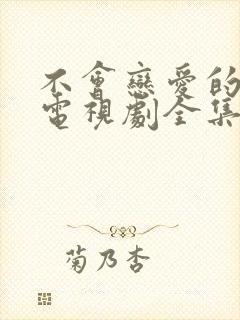 不會戀愛的
電視劇全集
菊乃杏